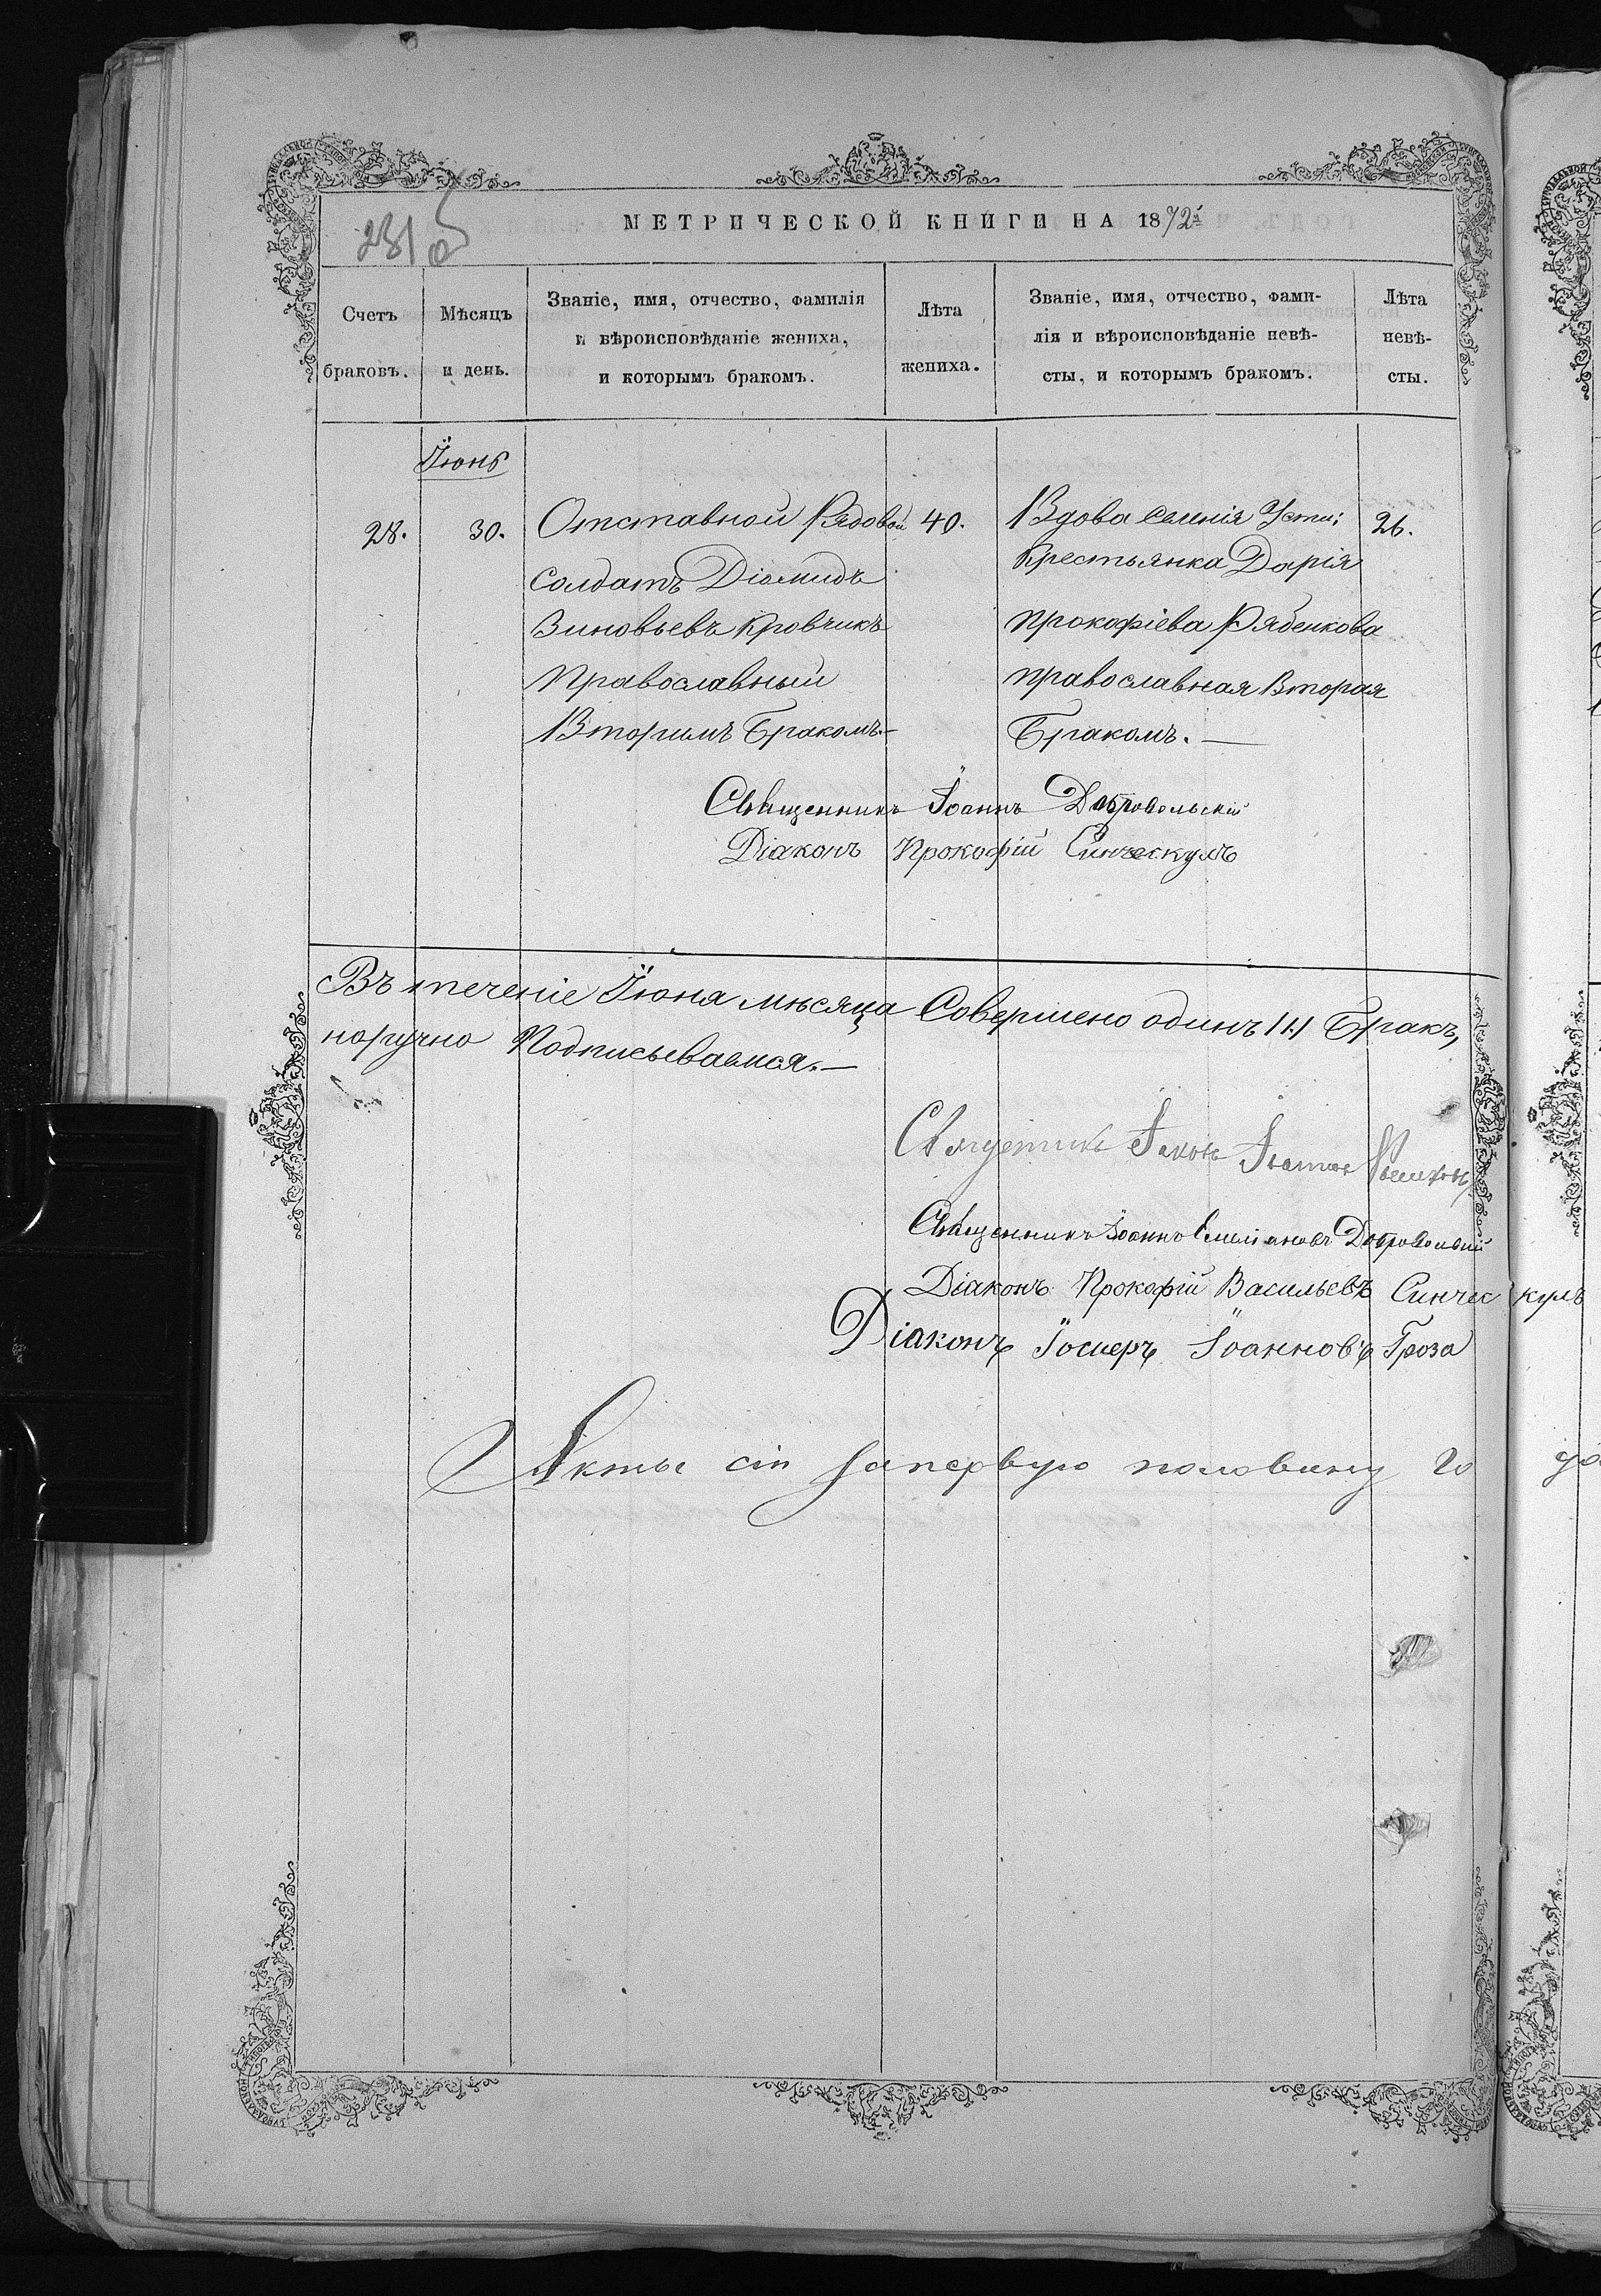 231 об
МЕТРИЧЕСКОЙ КНИГИ НА 1872й
Счетъ браковъ.
Мѣсяцъ и день.
Званіе, имя, отчество, фамилія
и вѣроисповѣданіе жениха,
и которымъ бракомъ.
Лѣта жениха.
Званіе, имя, отчество, фами-
лія и вѣроисповѣданіе невѣ-
сты, и которымъ бракомъ.
Лѣта невѣ-
сты.
Іюнь
28.
30.
Отставной Рядовой
солдатъ Діомидъ
Зиновьевъ Кровчикъ
Православный
Вторимъ Бракомъ.—
40.
Вдова селенія Усти;
Крестьянка Дарія
Прокофіева Рябенкова
православная Вторая
Бракомъ.—
26.
Священникъ Іоаннъ Добровольскій
Діаконъ Прокофій Синческулъ
Въ теченіе Іюна мѣсяца Совершено одинъ /1/ Бракъ,
норучно Подписываемся.—
Священникъ Іоаннъ Емеліановъ Добровольскій
Діаконъ Прокофій Васильевъ Синческулъ
Діаконъ Іосиеръ Іоанновъ Гроза
Акты сіи за первую половину го